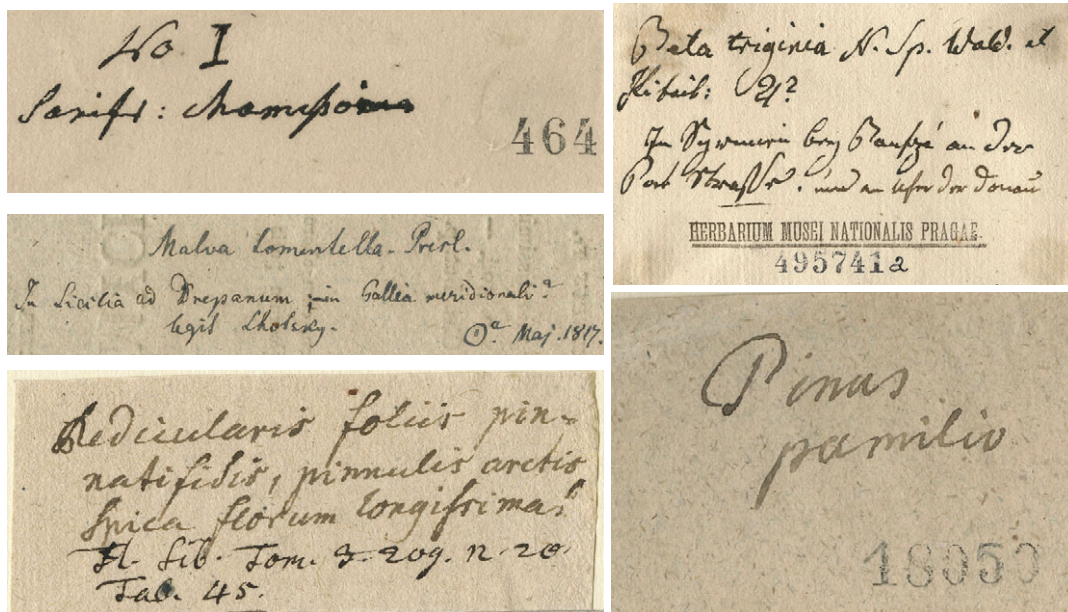 No I
Saxifr: Chamisso
464
Malva tomentella. Presl.
In Sicilia ad Drepanum; in Gallia meridionali
legit Lhotsky. ☉ Maj. 1817.
Pedicularis foliis pin=
natifidis, pinnulis arctis
spica florum longissima
Fl. Sib. Tom. 3. 209. n. 20
Tab. 45.
Beta triginia N. Sp. Wald. et
Kitaib: 4?
In Syrmien bey an der
Post Strasse. und an Ufer der Donau
HERBARIUM MUSEI NATIONALIS PRAGAE.
495741a
Pinus
pamilio
18050